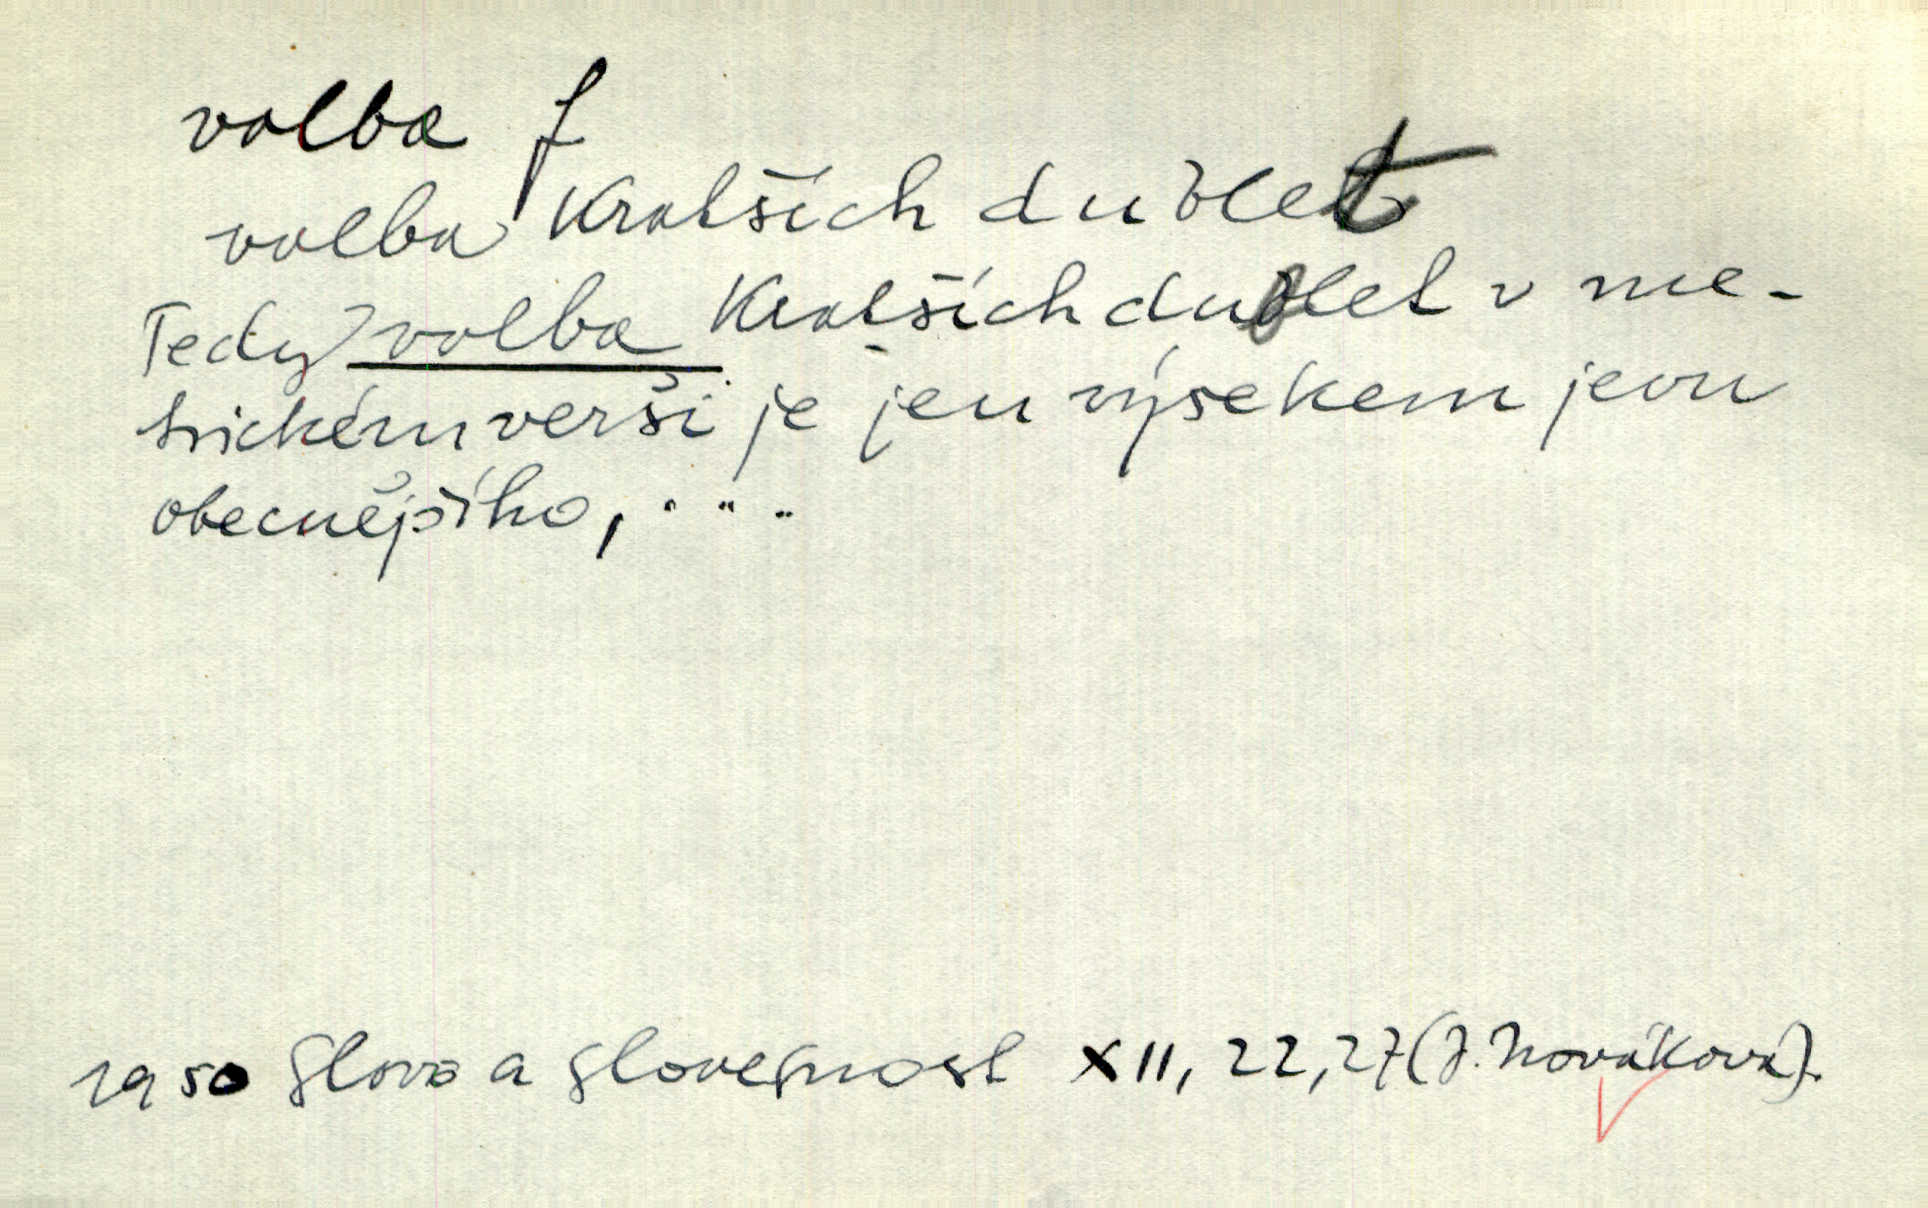 volba f
volba kratších dublet
Tedy volba kratších dublet v me-
trickém verši je jen výsekem jevu
obecnějšího, ....
1950 Slovo a slovesnost XII, 22, 27 (J. Nováková).